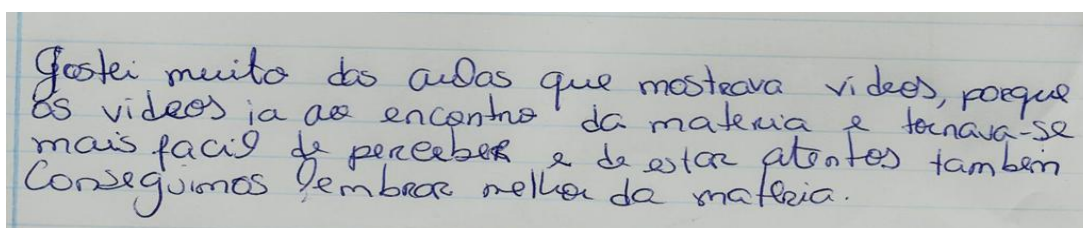 Gostei muito das aulas que mostrava videos, porque
os videos ia ao encontro da materia e tornava-se
mais facil de perceber e de estar atentos tambem
Conseguimos lembrar melhor da materia.